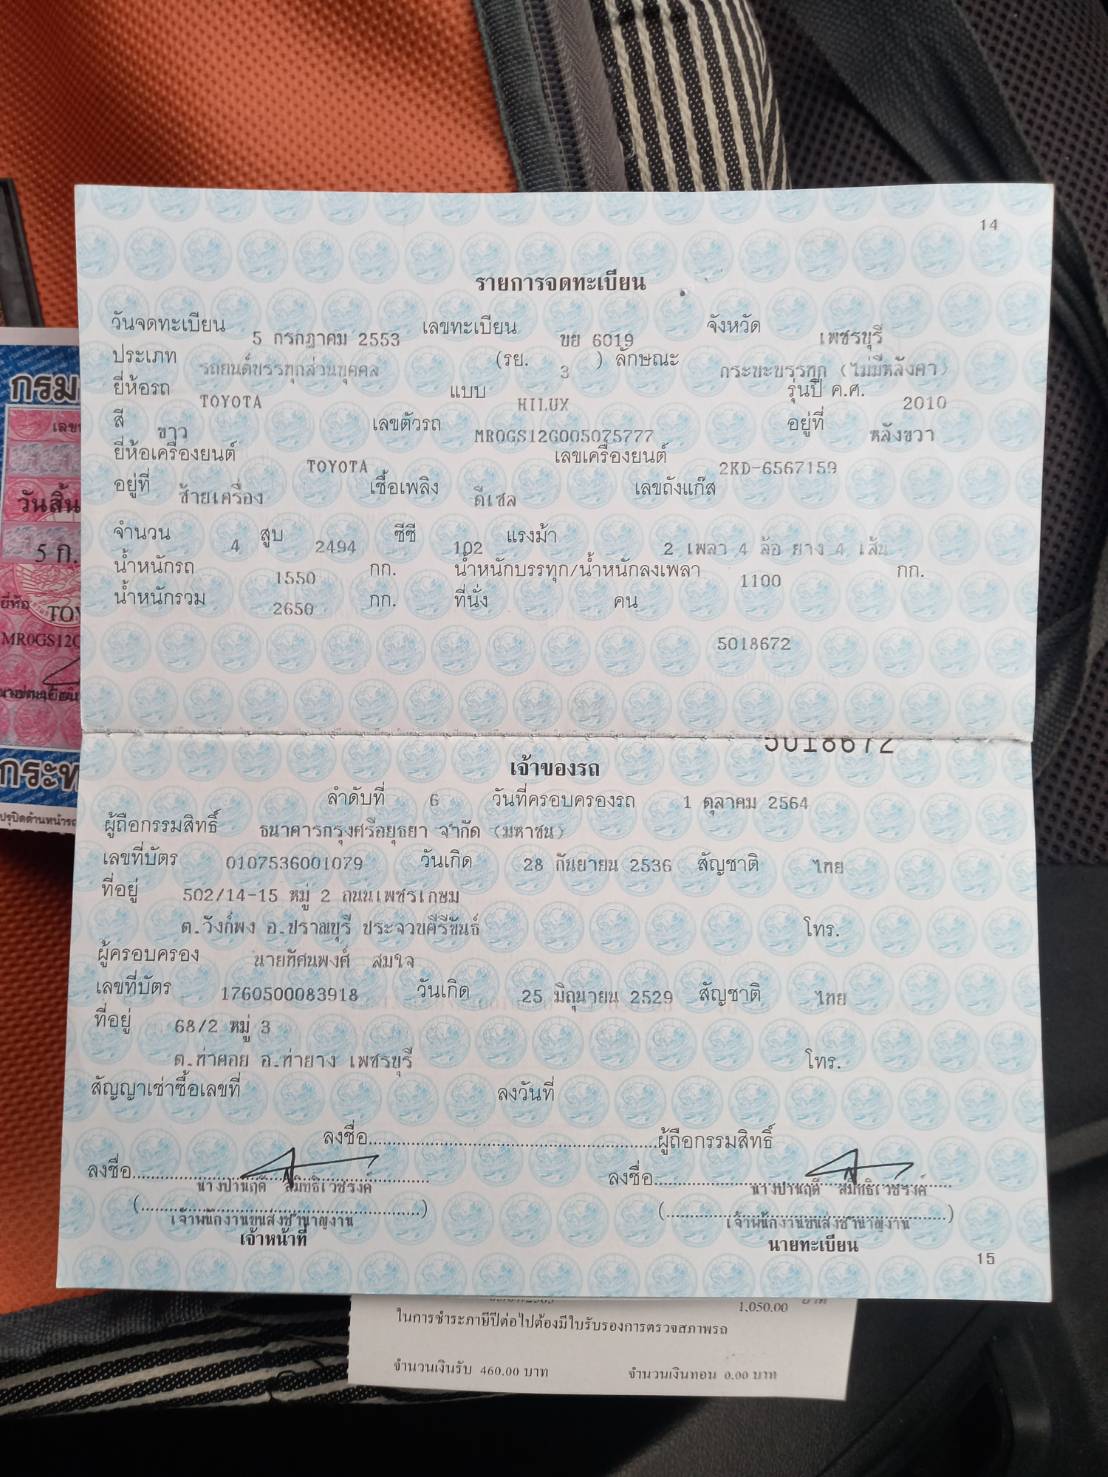 14
รายการจดทะเบียน
วันจดทะเบียน 5 กรกฎาคม 2553 เลขทะเบียน ขย 6019 จังหวัด เพชรบุรี
ประเภท รถยนต์บรรทุกส่วนบุคคล (รย. 3 ) ลักษณะ กระบะบรรทุก (ไม่มีหลังคา)
ยี่ห้อรถ TOYOTA แบบ HILUX รุ่นปี ค.ศ. 2010
สี ขาว เลขตัวรถ MR0GS12G005075777 อยู่ที่ หลังขวา
ยี่ห้อเครื่องยนต์ TOYOTA เลขเครื่องยนต์ 2KD-6567159
อยู่ที่ ซ้ายเครื่อง เชื้อเพลิง ดีเซล เลขถังแก๊ส
จำนวน 4 สูบ 2494 ซีซี 102 แรงม้า 2 เพลา 4 ล้อ ยาง 4 เส้น
น้ำหนักรถ 1550 กก. น้ำหนักบรรทุก/น้ำหนักลงเพลา 1100 กก.
น้ำหนักรวม 2650 กก. ที่นั่ง คน
5018672
5018672
เจ้าของรถ
ลำดับที่ 6 วันที่ครอบครองรถ 1 ตุลาคม 2564
ผู้ถือกรรมสิทธิ์ ธนาคารกรุงศรีอยุธยา จำกัด (มหาชน)
เลขที่บัตร 0107536001079 วันเกิด 28 กันยายน 2536 สัญชาติ ไทย
ที่อยู่ 502/14-15 หมู่ 2 ถนนเพชรเกษม
ต.วังก์พง อ.ปราณบุรี ประจวบคีรีขันธ์ โทร.
ผู้ครอบครอง นายทัศนพงศ์ สมใจ
เลขที่บัตร 1760500083918 วันเกิด 25 มิถุนายน 2529 สัญชาติ ไทย
ที่อยู่ 68/2 หมู่ 3
ต.ท่าคอย อ.ท่ายาง เพชรบุรี โทร.
สัญญาเช่าซื้อเลขที่ ลงวันที่
ลงชื่อ..........ผู้ถือกรรมสิทธิ์
ลงชื่อ.......... ลงชื่อ..........
นางปานฤดี สมิทธิเวชรงค์ นางปานฤดี สมิทธิเวชรงค์
(..........) (..........)
เจ้าพนักงานขนส่งชำนาญงาน เจ้าพนักงานขนส่งชำนาญงาน
เจ้าหน้าที่ นายทะเบียน
15
1,050.00 บาท
ในการชำระภาษีปีต่อไปต้องมีใบรับรองการตรวจสภาพรถ
จำนวนเงินรับ 460.00 บาท จำนวนเงินทอน 0.00 บาท
กรม
เลข
วันสิ้น
5 ก.
ยี่ห้อ TOY
MR0GS12G
กระท